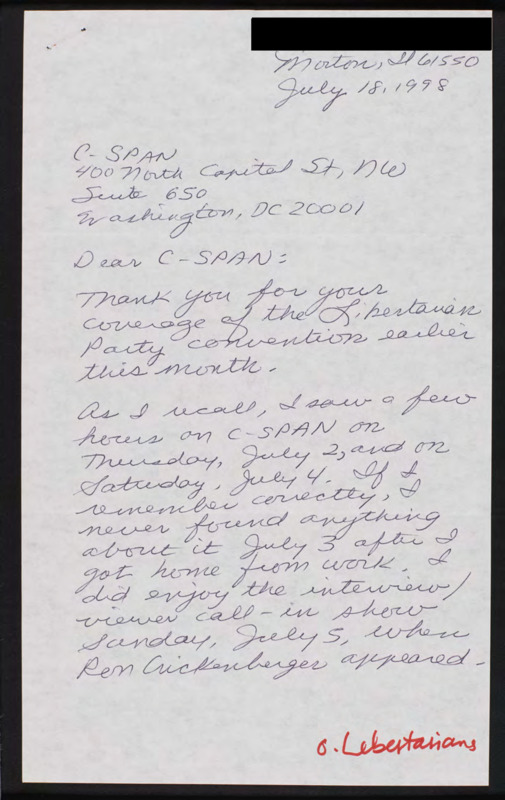 Morton, Il 61550
July 18, 1998
C-SPAN
400 North Capitol St, NW
Suite 650
Washington, DC 20001
Dear C-SPAN:
Thank you for your
coverage of the Libertarian
Party convention earlier
this month.
As I recall, I saw a few
hours on C-SPAN on
Thursday, July 2, and on
Saturday, July 4. If I
remember correctly, I
never found anything
about it July 3 after I
got home from work. I
did enjoy the interview/
viewer call-in show
Sunday, July 5, when
Ron Crickenberger appeared.
o. Lebertarians